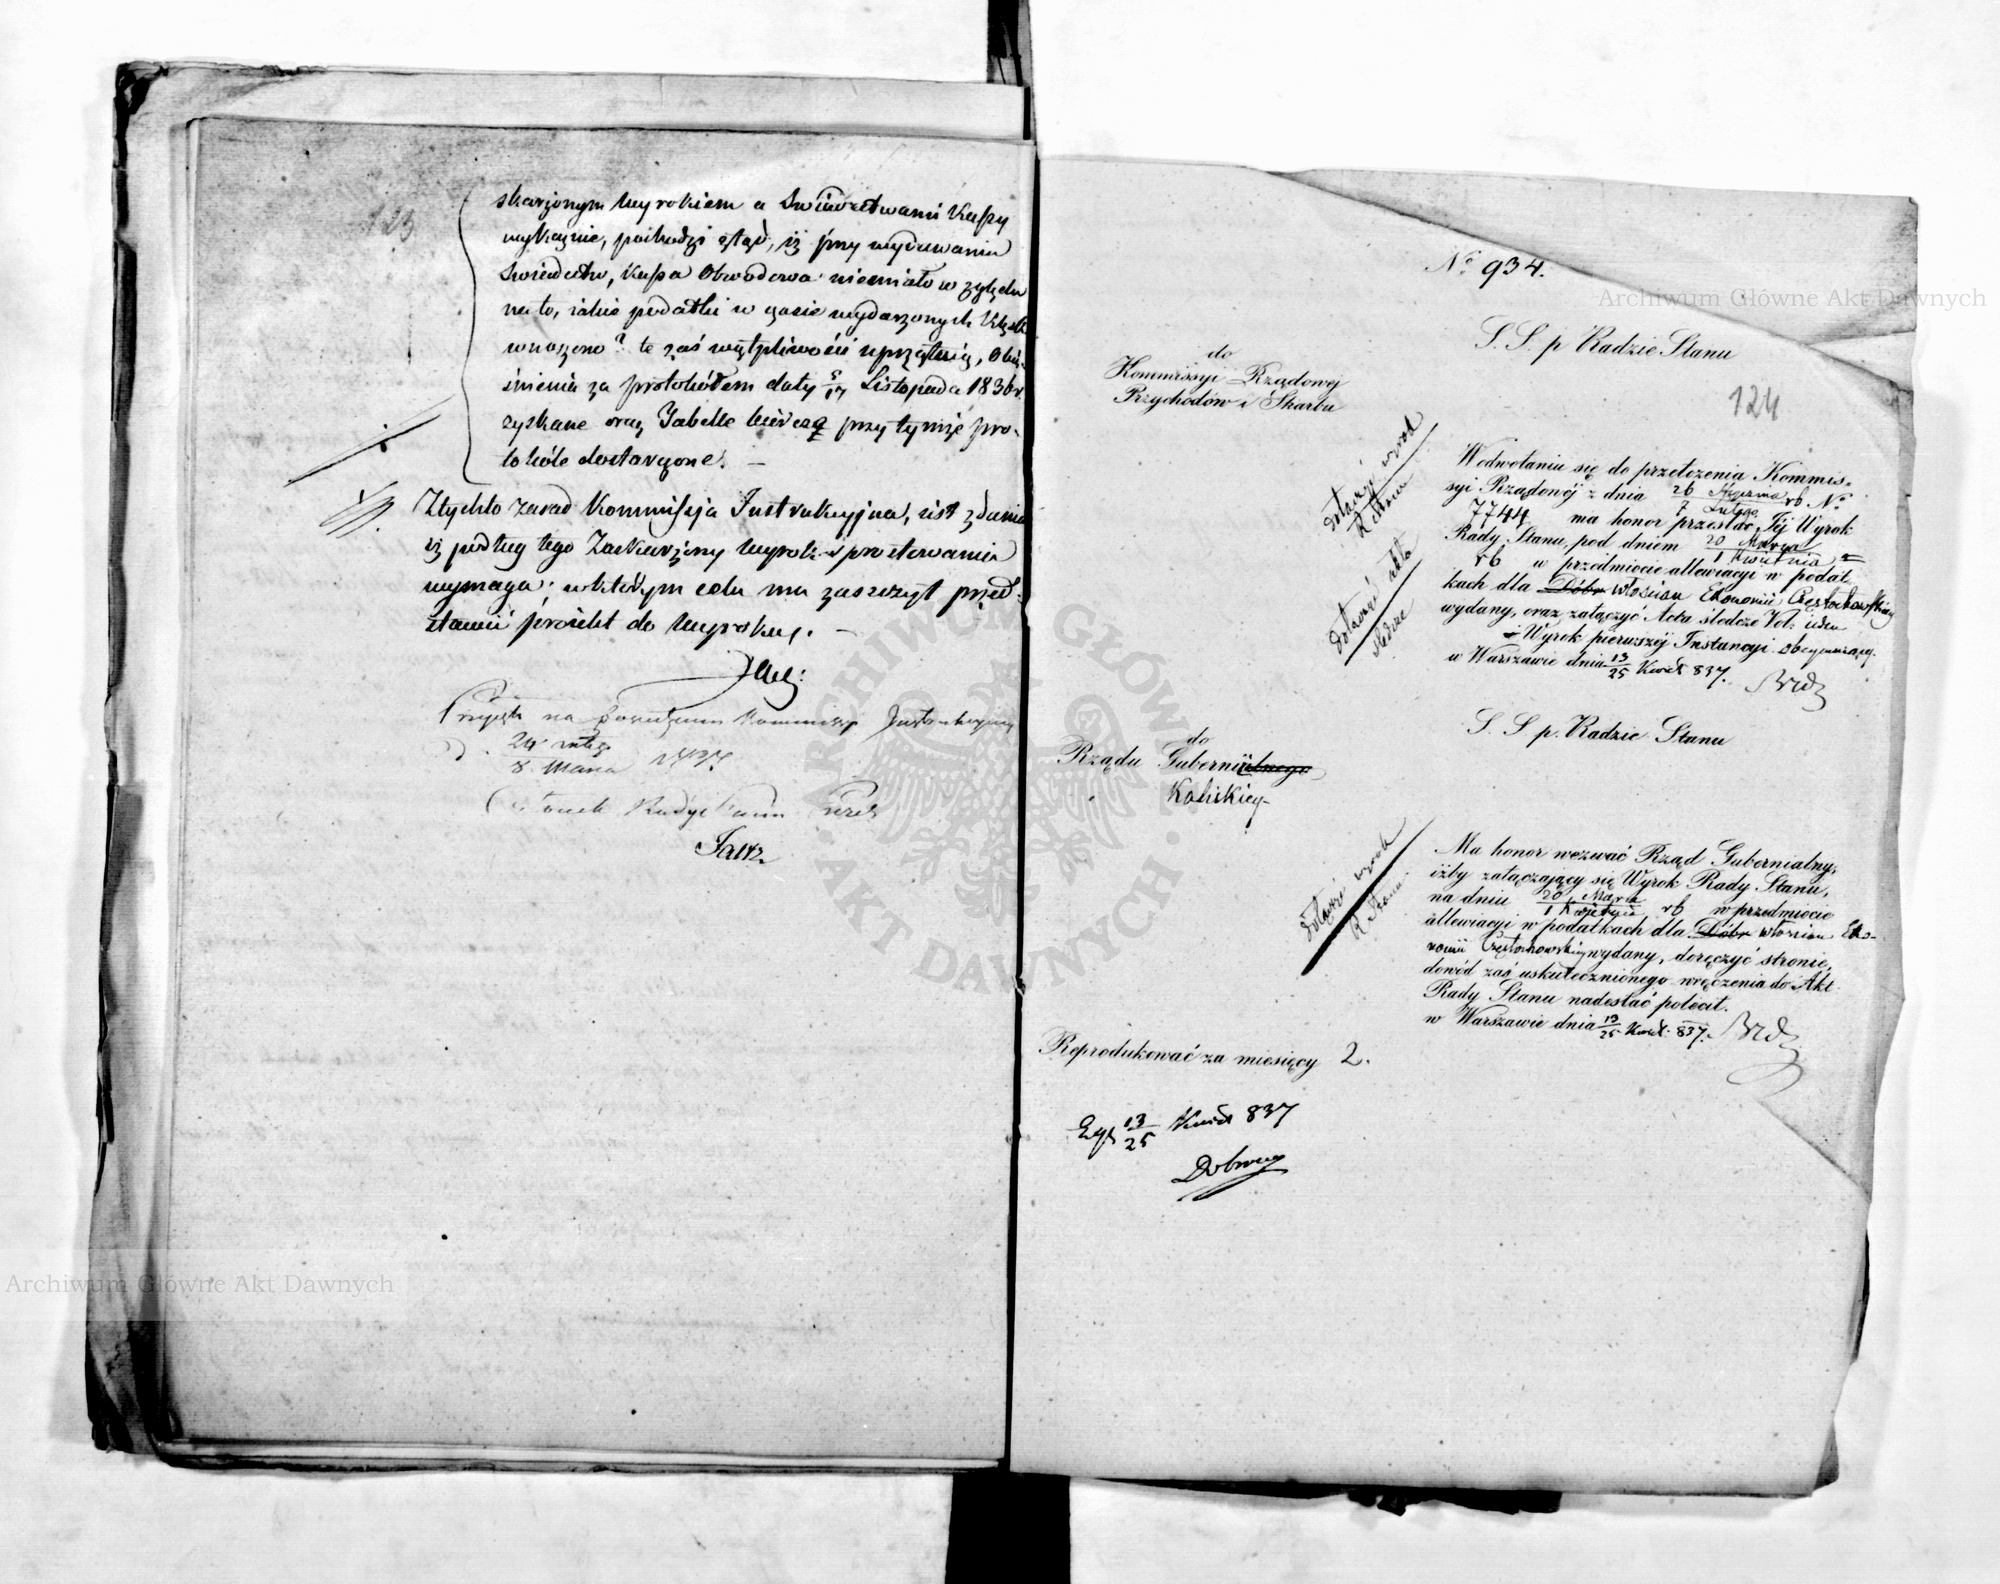 123
skarżonym Wyrokiem a Świadectwami Kassy
wykaznie, pochodzi ztąd, iż przy wydawaniu
Świadectw, Kassa Obwodowa niemiała względu
na to, jakie podatki w czasie wydarzonych Klęsk
wnoszono? te zaś wątpliwości uprzątnią, Obja-
śnienia za protokółem daty 5/17 Listopada 1836 r.
zyskane oraz Tabelle bierczą przy tymże pro-
tokóle dostarczone. —
Ztychto zasad Kommissja Instrukcyjna, jest zdania
iż podług tego Zaskarżony Wyrok sprostowania
wymaga; w którym celu ma zaszczyt przed-
stawić projekt do Wyroku. —
Przyjęte na posiedzeniu Kommissyi Instrukcyjney
d. 24 Lutego / 8 Marca 1837
Członek Rady Stanu Prezes
No 934.
S. S. p Radzie Stanu
124
do
Kommissyi Rządowej
Przychodów i Skarbu
dołączyć wyrok
R. Stanu
dołączyć akta
śledcze
W odwołaniu się do przełożenia Kommis-
syi Rządowej z dnia 26 Stycznia / 7 Lutego rb No
7744 ma honor przesłać Jej Wyrok
Rady Stanu, pod dniem 20 Marca / 1 Kwietnia =
rb w przedmiocie allewiacyi w podat-
kach dla Dóbr włościan Ekonomii Częstochowskiey
wydany, oraz załączyć Acta śledcze Vol: jeden
i Wyrok pierwszej Instancyi obejmujący.
w Warszawie dnia 13/25 Kwiet 837.
S. S p. Radzie Stanu
do
Rządu Gubernialnego
Kaliskiey
dołączyć wyrok
R. Stanu
Ma honor wezwać Rząd Gubernialny,
iżby załączający się Wyrok Rady Stanu,
na dniu 20 Marca / 1 Kwietnia rb w przedmiocie
allewiacyi w podatkach dla Dóbr włościan Eko-
nomii Częstochowskiey wydany, doręczyć stronie,
dowód zaś uskutecznionego wręczenia do Akt
Rady Stanu nadesłać polecił.
w Warszawie dnia 13/25 Kwiet. 837.
Reprodukować za miesięcy 2.
Exp 13/25 Kwiet 837
Archiwum Główne Akt Dawnych
Archiwum Główne Akt Dawnych
ARCHIWUM GŁÓWNE AKT DAWNYCH